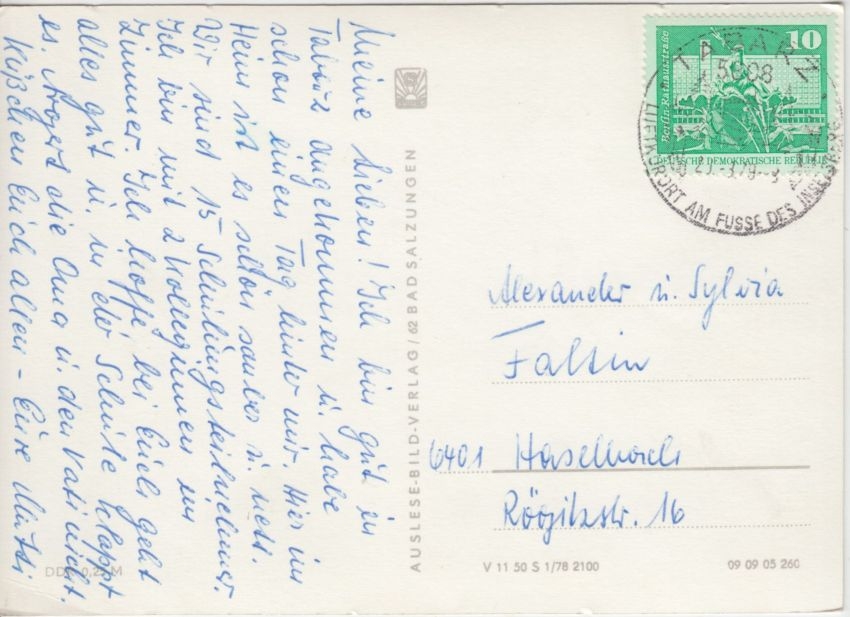 Meine Lieben! Ich bin gut in
Tabarz angekommen u. habe
schon einen Tag hinter mir. Hier im
Heim ist es schön sauber u. nett.
Wir sind 15 Schulungsteilnehmer.
Ich bin mit 2 Kolleginnen im
Zimmer. Ich hoffe, bei Euch geht
alles gut u. in der Schule klappt
es. Ärgert die Oma u. den Vati nicht.
Küßchen Euch allen - Eure Mutti
DDR 0,25 M
AUSLESE-BILD-VERLAG / 62 BAD SALZUNGEN
10
Berlin-Rathausstraße
DEUTSCHE DEMOKRATISCHE REPUBLIK
TABARZ
5808
LUFTKURORT AM FUSSE DES INSELSBERG
Alexander u. Sylvia
Faltin
6401 Haselbach
16
V 11 50 S 1/78 2100
09 09 05 260